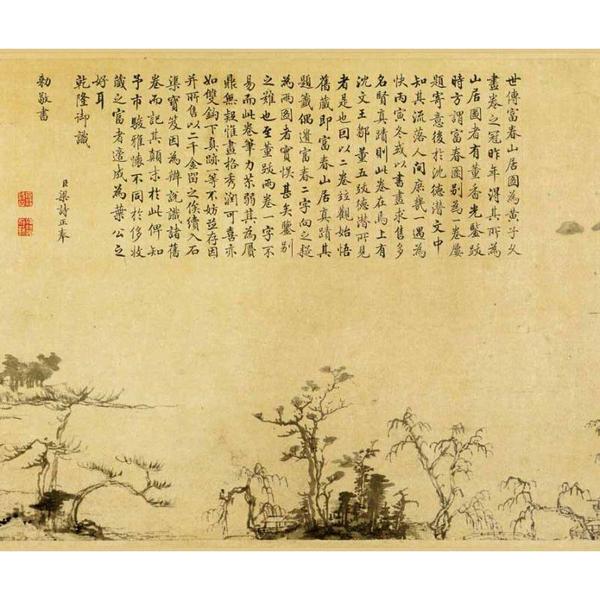 世傳富春山居圖為黃子久
畫卷之冠昨年得其所為
山居圖者有董香光鑒跋
時方謂富春圖別為一卷屢
題寄意後於沈德潛文中
知其流落人間庶幾一遇為
快丙寅冬或以書畫求售多
名賢真蹟則此卷在焉上有
沈文王鄒董五跋德潛所見
者是也因以二卷竝觀始悟
舊藏即富春山居真蹟其
題籤偶遺富春二字向之疑
為兩圖者實悞甚矣鑒別
之難也至董跋兩卷一字不
易而此卷筆力苶弱其為贋
鼎無疑惟畫格秀潤可喜亦
如雙鈎下真跡一等不妨竝存因
并所售以二千金留之俟續入石
渠寶笈因為辨說識諸舊
卷而記其顛末於此俾知
予市駿雅懷不同於侈收
藏之富者適成為葉公之
好耳
乾隆御識
臣梁詩正奉
勅敬書